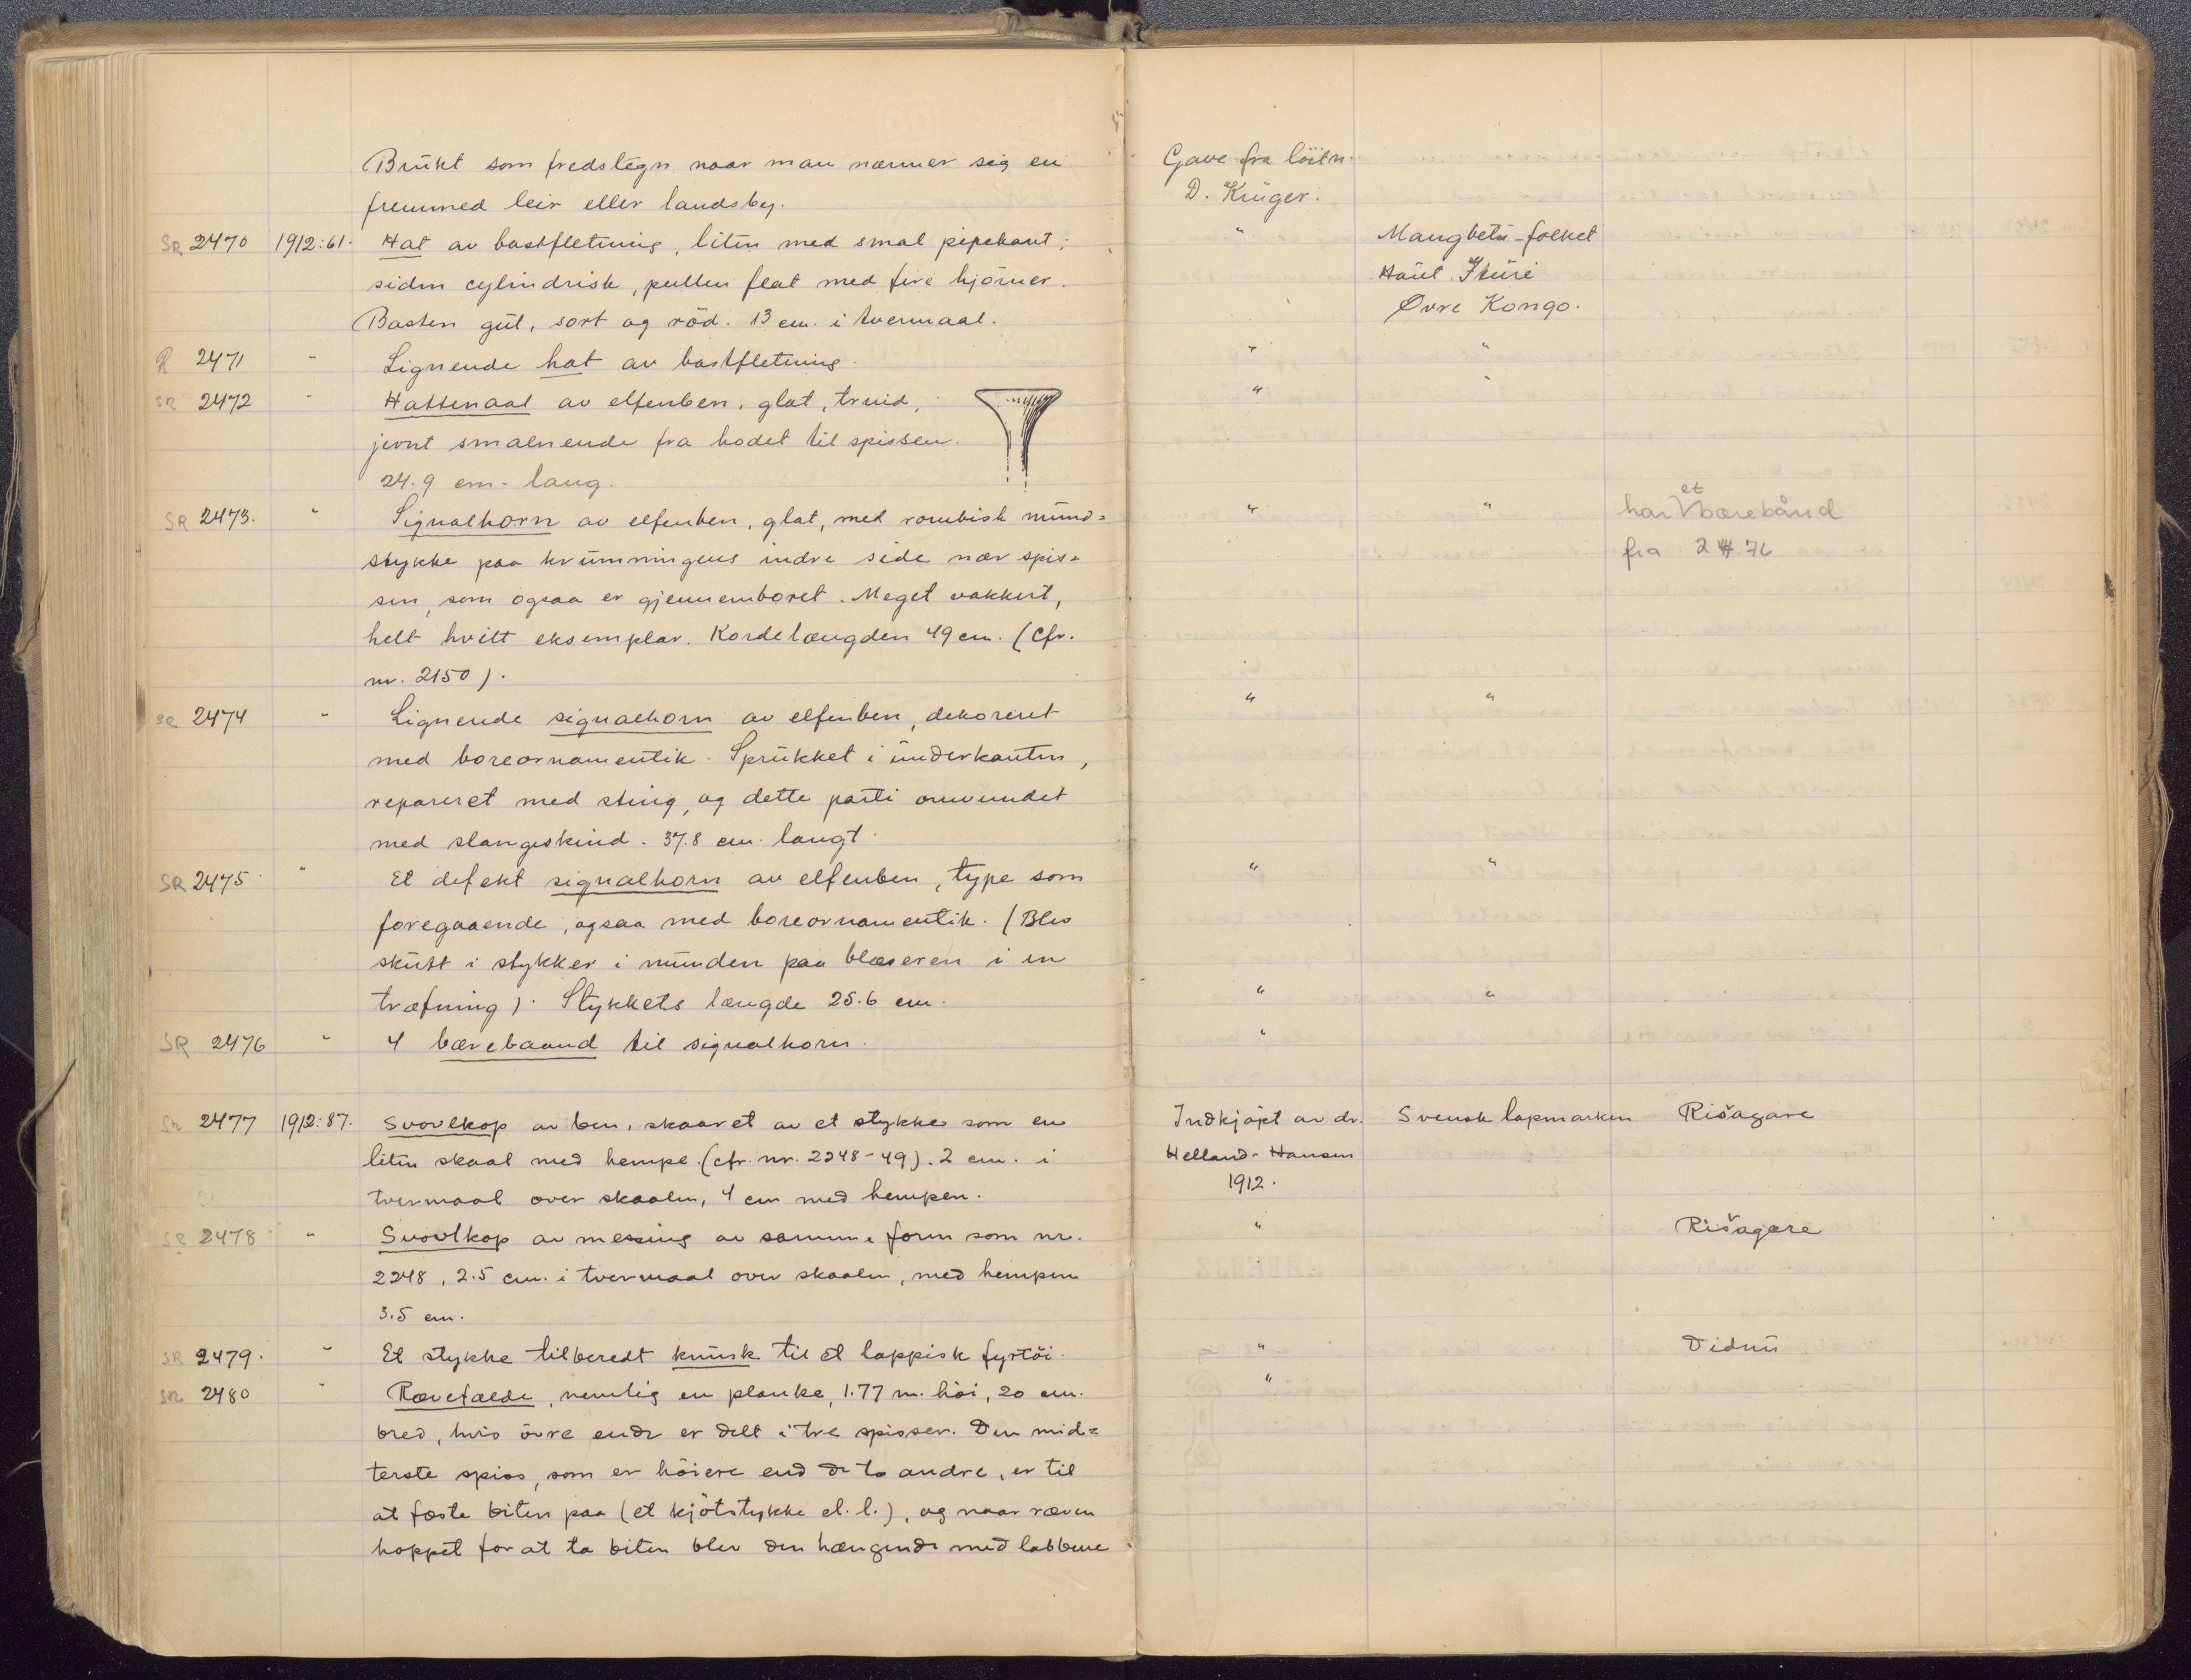 Brukt som fredstegn naar man nærmer sig en
fremmed leir eller landsby.
Gave fra löitn.
D. Krüger.
SR 2470 1912:61. Hat av bastfletning, liten med smal pipekant;
siden cylindrisk, pullen flat med fire hjörner.
Basten gul, sort og röd. 13 cm. i tvermaal.
" Mangbetu-folket
Haut Ituri
Øvre Kongo.
R 2471 " Lignende hat av bastfletning. " "
SR 2472 " Hattenaal av elfenben, glat, trind, " "
jevnt smalnende fra hodet til spissen.
24.9 cm. lang.
SR 2473. " Signalhorn av elfenben, glat, med rombisk mund=
stykke paa krumningens indre side nær spis=
sen, som ogsaa er gjennemboret. Meget vakkert,
helt hvitt eksemplar. Kordelængden 49 cm. (Cfr.
nr. 2150).
" " har et bærebånd
fra 2476
SR 2474 " Lignende signalhorn av elfenben, dekoreret " "
med boreornamentik. Sprukket i underkanten,
repareret med sting, og dette parti omvundet
med slangeskind. 37.8 cm. langt.
SR 2475 " Et defekt signalhorn av elfenben, type som " "
foregaaende, ogsaa med boreornamentik. (Blev
skutt i stykker i munden paa blæseren i en
træfning). Stykkets længde 25.6 cm. " "
SR 2476 " 4 bærebaand til signalhorn. "
SR 2477 1912:87. Svovlkop av ben, skaaret av et stykke som en
liten skaal med hempe. (cfr. nr. 2248-49). 2 cm. i
tvermaal over skaalen, 4 cm med hempen.
Indkjøpt av dr. Svensk lapmarken Rišagare
Helland-Hansen
1912.
SR 2478 " Svovlkop av messing av samme form som nr. " Rišagare
2248, 2.5 cm. i tvermaal over skaalen, med hempen
3.5 cm.
SR 2479. " Et stykke tilberedt knusk til et lappisk fyrtöi. " Didnu
SR 2480 " Rævefælde, nemlig en planke, 1.77 m. höi, 20 cm. "
bred, hvis övre ende er delt i tre spisser. Den mid=
terste spiss, som er höiere end de to andre, er til
at fæste biten paa (et kjötstykke el. l.), og naar ræven
hoppet for at ta biten blev den hængende med labbene